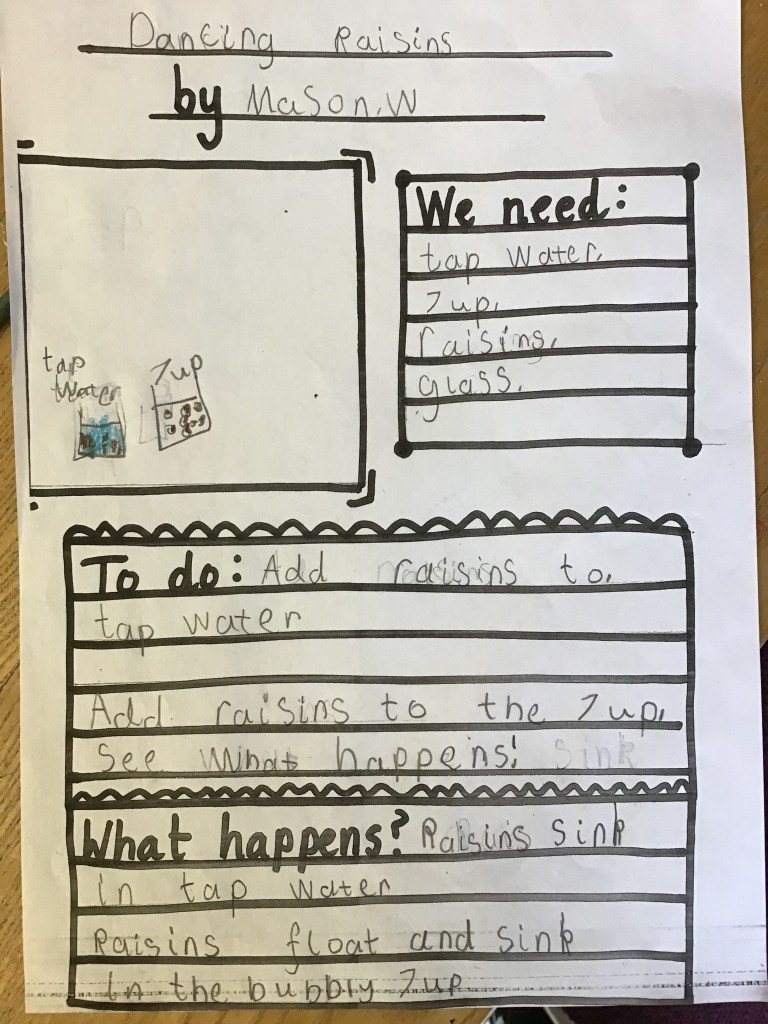 Dancing Raisins
by Mason.W
We need:
tap water.
7up.
raisins.
glass.
tap
water
7up
To do: Add raisins to.
tap water
Add raisins to the 7up.
See What happens! Sink
What happens? Raisins Sink
in tap water
Raisins float and sink
in the bubbly 7up